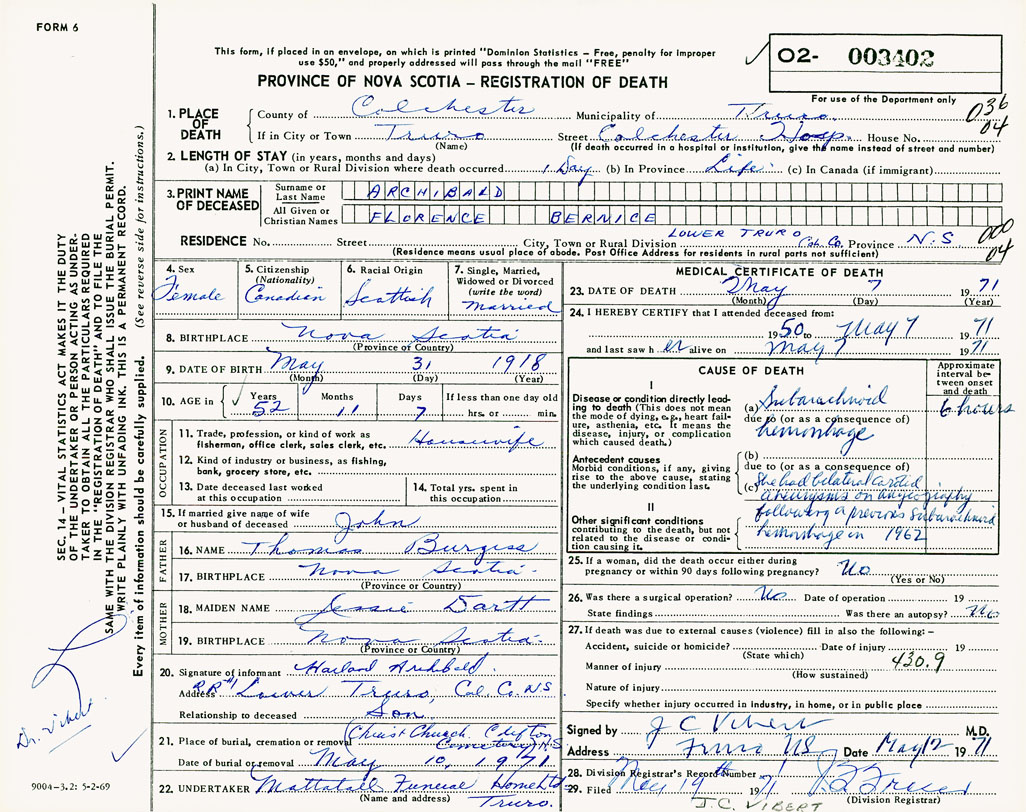 FORM 6
This form, if placed in an envelope, on which is printed "Dominion Statistics – Free, penalty for improper
use $50," and properly addressed will pass through the mail "FREE"
PROVINCE OF NOVA SCOTIA – REGISTRATION OF DEATH
02- 003402
For use of the Department only
036
04
1. PLACE OF DEATH
County of Colchester Municipality of Truro
If in City or Town Truro Street Colchester Hosp. House No.
(Name) (If death occurred in a hospital or institution, give the name instead of street and number)
2. LENGTH OF STAY (in years, months and days)
(a) In City, Town or Rural Division where death occurred 1 Day (b) In Province Life (c) In Canada (if immigrant)
3. PRINT NAME OF DECEASED
Surname or Last Name ARCHIBALD
All Given or Christian Names FLORENCE BERNICE
RESIDENCE No. Street City, Town or Rural Division LOWER TRURO Col. Co. Province N.S
000
04
(Residence means usual place of abode. Post Office Address for residents in rural parts not sufficient)
4. Sex Female
5. Citizenship (Nationality) Canadian
6. Racial Origin Scottish
7. Single, Married, Widowed or Divorced (write the word) Married
8. BIRTHPLACE Nova Scotia
(Province or Country)
9. DATE OF BIRTH May 31 1918
(Month) (Day) (Year)
10. AGE in Years 52 Months 11 Days 7 If less than one day old hrs. or min.
OCCUPATION
11. Trade, profession, or kind of work as
fisherman, office clerk, sales clerk, etc. Housewife
12. Kind of industry or business, as fishing,
bank, grocery store, etc.
13. Date deceased last worked
at this occupation
14. Total yrs. spent in
this occupation
15. If married give name of wife
or husband of deceased John
FATHER
16. NAME Thomas Burgiss
17. BIRTHPLACE Nova Scotia
(Province or Country)
MOTHER
18. MAIDEN NAME Jessie Dartt
19. BIRTHPLACE Nova Scotia
(Province or Country)
20. Signature of informant Harland Archibald
Address RR#1 Lower Truro, Col. Co. NS
Relationship to deceased Son
21. Place of burial, cremation or removal Christ Church Clifton
Cemetery N.S
Date of burial or removal May 10, 1971
22. UNDERTAKER Mattatall Funeral Home Ltd
(Name and address) Truro.
MEDICAL CERTIFICATE OF DEATH
23. DATE OF DEATH May 7 1971
(Month) (Day) (Year)
24. I HEREBY CERTIFY that I attended deceased from:
1950 to May 7 1971
and last saw her alive on May 7 1971
CAUSE OF DEATH
Approximate interval between onset and death
I
Disease or condition directly leading to death (This does not mean the mode of dying, e.g., heart failure, asthenia, etc. It means the disease, injury, or complication which caused death.)
(a) Subarachnoid
due to (or as a consequence of)
hemorrhage
6 hours
Antecedent causes
Morbid conditions, if any, giving rise to the above cause, stating the underlying condition last.
(b)
due to (or as a consequence of)
(c) She had bilateral carotid
aneurysms on angiography
II
Other significant conditions contributing to the death, but not related to the disease or condition causing it.
following a previous subarachnoid
hemorrhage in 1962
25. If a woman, did the death occur either during
pregnancy or within 90 days following pregnancy? No
(Yes or No)
26. Was there a surgical operation? No Date of operation 19
State findings Was there an autopsy? No
27. If death was due to external causes (violence) fill in also the following: –
Accident, suicide or homicide? Date of injury 19
(State which) 430.9
Manner of injury
(How sustained)
Nature of injury
Specify whether injury occurred in industry, in home, or in public place
Signed by J C Vibert M.D.
Address Truro NS Date May 12 1971
28. Division Registrar's Record Number
29. Filed May 19 1971
Division Registrar
J.C. VIBERT
SEC. 14 – VITAL STATISTICS ACT MAKES IT THE DUTY
OF THE UNDERTAKER OR PERSON ACTING AS UNDER-
TAKER TO OBTAIN ALL THE PARTICULARS REQUIRED
IN THE "REGISTRATION OF DEATH" AND TO FILE THE
SAME WITH THE DIVISION REGISTRAR WHO SHALL ISSUE THE BURIAL PERMIT.
WRITE PLAINLY WITH UNFADING INK. THIS IS A PERMANENT RECORD.
Every item of information should be carefully supplied. (See reverse side for instructions.)
Dr. Vibert
9004-3.2: 5-2-69